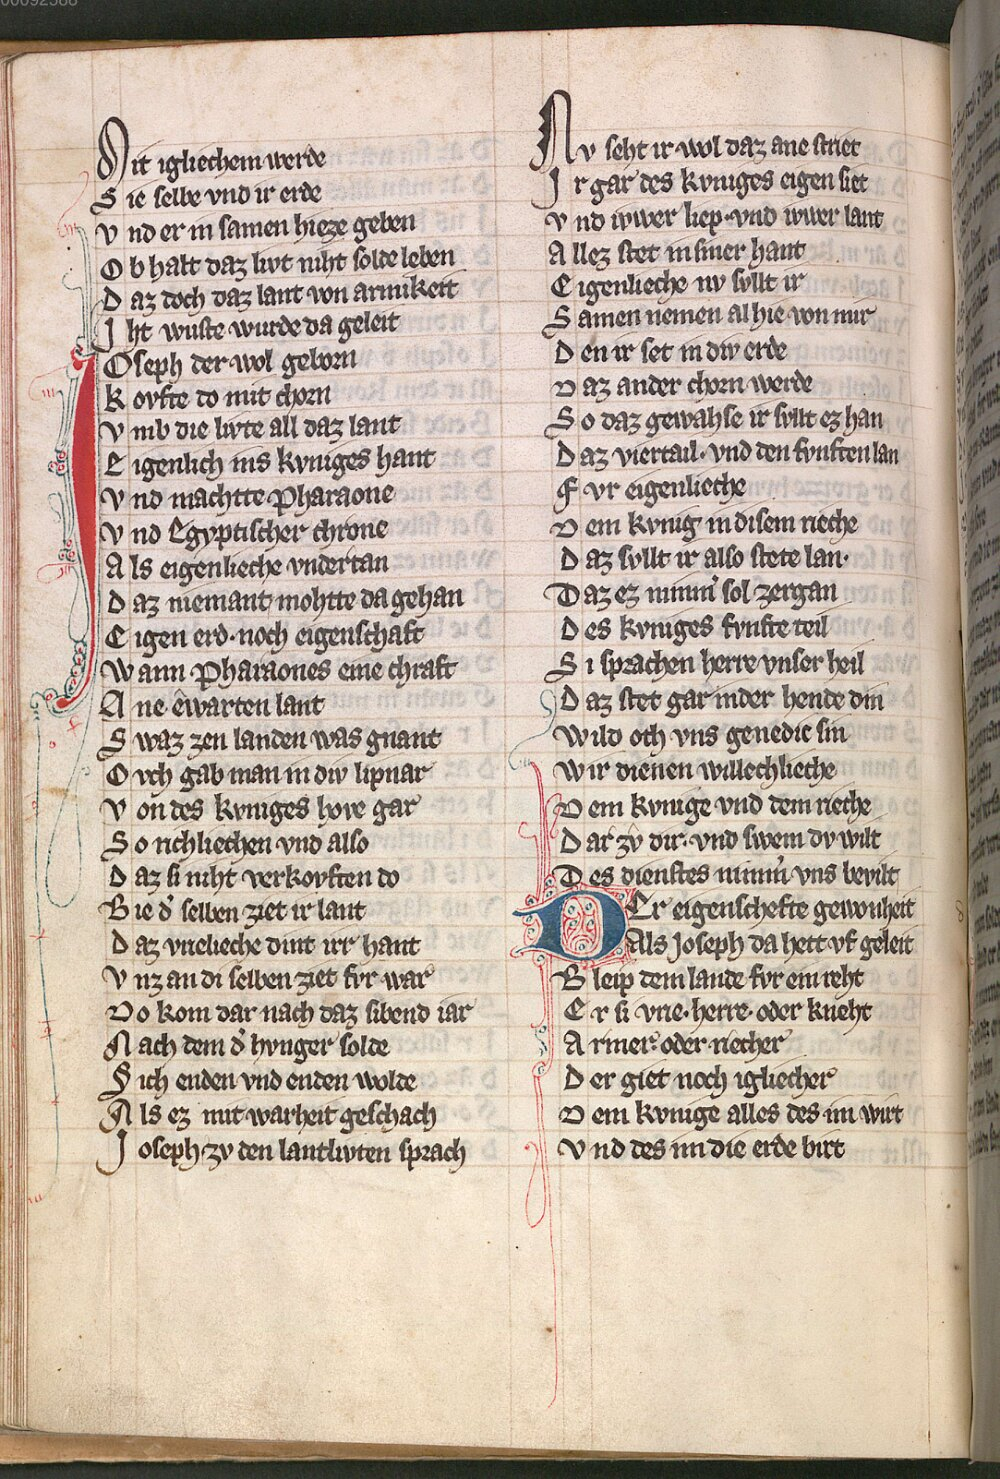 Mit igliechem werde
Sie selbe vnd ir erde
Vnd er in samen hieze geben
Ob halt daz livt niht solde leben
Daz doch daz lant von armikeit
Iht wuste wurde da geleit
IOseph der wol geborn
Kovfte do mit chorn
Vmb die livte all daz lant
Eigenlich ins kvniges hant
Vnd machtte Pharaone
Vnd Egyptischer chrone
Als eigenlieche vndertan
Daz niemant mohtte da gehan
Eigen erd· noch eigenschaft
Wann Pharaones eine chraft
Ane êwarten lant
Swaz zen landen was gnant
Ovch gab man in div lipnar
Von des kvniges hove gar
So richliechen vnd also
Daz si niht verkovften do
Bie d̕ selben ziet ir lant
Daz vrielieche dint irr hant
Vnz an di selben ziet fvr war
Do kom dar nach daz sibend iar
Nach dem d̕ hvnger solde
Sich enden vnd enden wolde
Als ez mit warheit geschach
Joseph zv den lantlivten sprach
Nv seht ir wol daz ane striet
Ir gar des kvniges eigen siet
Vnd iwer liep· vnd iwer lant
Allez stet in siner hant
Eigenlieche nv svllt ir
Samen nemen al hie von mir
Den ir set in div erde
Daz ander chorn werde
So daz gewahse ir svllt ez han
Daz viertail· vnd den fvnften lan
Fvr eigenlieche
Dem kvnig in disem rieche
Daz svllt ir also stete lan·
Daz ez nimm̕ sol zergan
Des kvniges fvnfte teil
Si sprachen herre vnser heil
Daz stet gar in der hende din
Wild och vns genedic sin
Wir dienen willechlieche
Dem kvnige vnd dem rieche
Dar zv dir· vnd swem dv wilt
Des dienstes nimm̕ vns bevilt
DEr eigenschefte gewonheit
Als Joseph da hett vf geleit
Bleip dem lande fvr ein reht
Er si vrie· herre· oder kneht
Armer· oder riecher
Der giet noch igliecher
Dem kvnige alles des im wirt
Vnd des im die erde birt